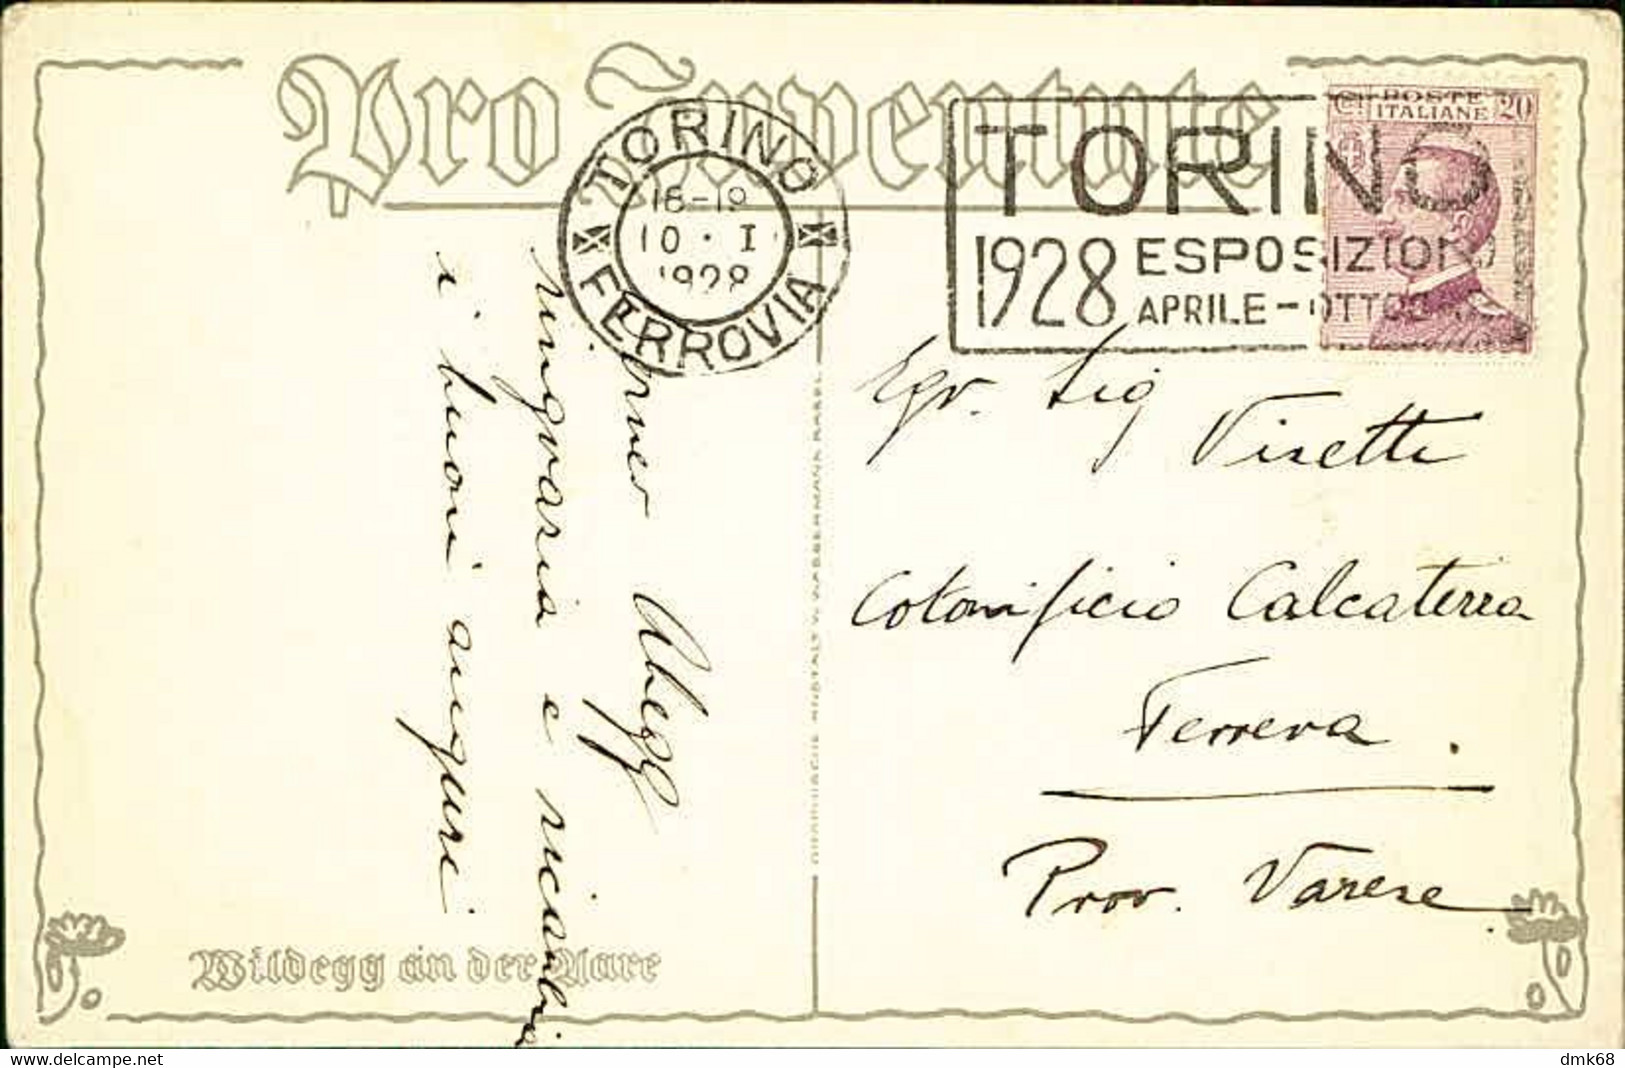 Pro Juventute
TORINO
18-19
10 · I
1928
FERROVIA
TORINO
1928 ESPOSIZIONE
APRILE-OTTOBRE
Ct POSTE ITALIANE 20
Egr. Sig
Visetti
Cotonificio Calcaterra
Ferrera.
Prov. Varese
Abegg
ringrazia e ricambia
i buoni auguri
Wildegg an der Aare
dmk68
delcampe.net